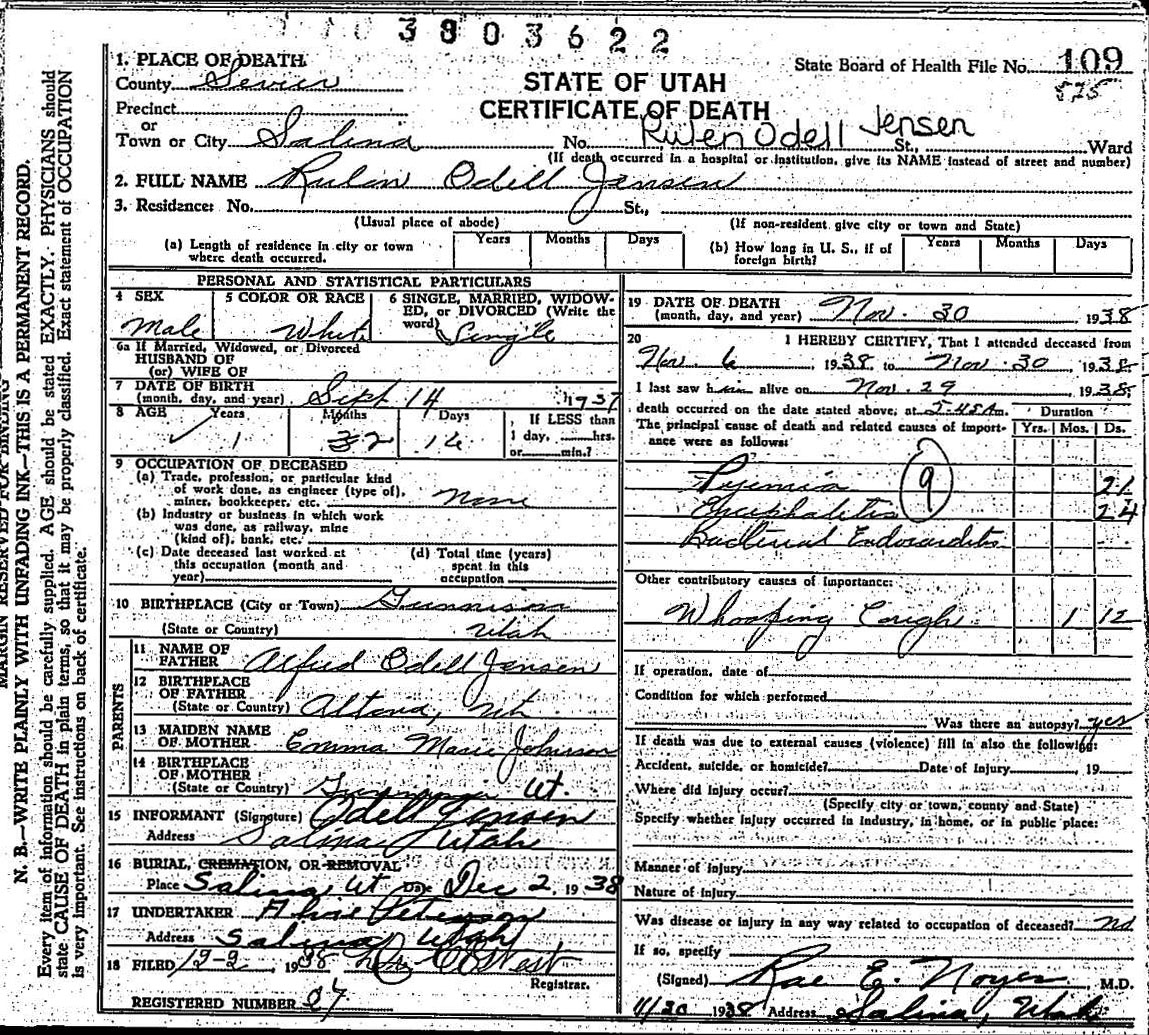 3803622
1. PLACE OF DEATH
County Sevier
STATE OF UTAH
CERTIFICATE OF DEATH
State Board of Health File No. 109
575
Precinct
or
Town or City Salina No. Rulen Odell Jensen St., Ward
(If death occurred in a hospital or institution, give its NAME instead of street and number)
2. FULL NAME Rulin Odell Jensen
3. Residence: No. St.,
(Usual place of abode) (If non-resident give city or town and State)
(a) Length of residence in city or town where death occurred. Years Months Days
(b) How long in U. S., if of foreign birth? Years Months Days
PERSONAL AND STATISTICAL PARTICULARS
4 SEX
Male
5 COLOR OR RACE
White
6 SINGLE, MARRIED, WIDOW-
ED, or DIVORCED (Write the
word) Single
6a If Married, Widowed, or Divorced
HUSBAND OF
(or) WIFE OF
7 DATE OF BIRTH
(month, day, and year) Sept 14 1937
8 AGE Years Months Days If LESS than
1 day, hrs.
or min.?
1 2
9 OCCUPATION OF DECEASED
(a) Trade, profession, or particular kind
of work done, as engineer (type of),
miner, bookkeeper, etc. None
(b) Industry or business in which work
was done, as railway, mine
(kind of), bank, etc.
(c) Date deceased last worked at
this occupation (month and
year)
(d) Total time (years)
spent in this
occupation
10 BIRTHPLACE (City or Town) Gunnison
(State or Country) Utah
PARENTS
11 NAME OF
FATHER Alfred Odell Jensen
12 BIRTHPLACE
OF FATHER
(State or Country) Ut
13 MAIDEN NAME
OF MOTHER Emma Marie Johnson
14 BIRTHPLACE
OF MOTHER
(State or Country) Gunnison Ut.
15 INFORMANT (Signature) Odell Jensen
Address Salina, Utah
16 BURIAL, CREMATION, OR REMOVAL
Place Salina Ut Date Dec 2, 1938
17 UNDERTAKER Peterson
Address Salina Utah
18 FILED 12-2, 1938 West
Registrar.
REGISTERED NUMBER 87
19 DATE OF DEATH
(month, day, and year) Nov. 30 1938
20 I HEREBY CERTIFY, That I attended deceased from
Nov. 6, 1938, to Nov. 30, 1938
I last saw him alive on Nov. 29 1938,
death occurred on the date stated above, at 5:45 A m.
Duration
The principal cause of death and related causes of import-
ance were as follows:
Yrs. Mos. Ds.
Pyemia 9 21
Encephalitis 24
Bacterial Endocarditis
Other contributory causes of importance:
Whooping Cough 1 12
If operation, date of
Condition for which performed
Was there an autopsy? yes
If death was due to external causes (violence) fill in also the following:
Accident, suicide, or homicide? Date of Injury , 19
Where did injury occur?
(Specify city or town, county and State)
Specify whether injury occurred in industry, in home, or in public place:
Manner of injury
Nature of injury
Was disease or injury in any way related to occupation of deceased? No
If so, specify
(Signed) Rae E. Noyes M.D.
11/30 1938 Address Salina, Utah
MARGIN RESERVED FOR BINDING
N. B.—WRITE PLAINLY WITH UNFADING INK—THIS IS A PERMANENT RECORD.
Every item of information should be carefully supplied. AGE should be stated EXACTLY. PHYSICIANS should
state CAUSE OF DEATH in plain terms, so that it may be properly classified. Exact statement of OCCUPATION
is very important. See instructions on back of certificate.